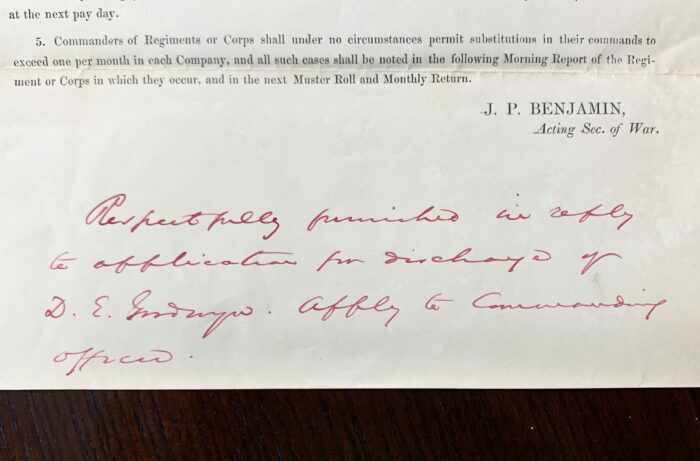 at the next pay day.
5. Commanders of Regiments or Corps shall under no circumstances permit substitutions in their commands to
exceed one per month in each Company, and all such cases shall be noted in the following Morning Report of the Regi-
ment or Corps in which they occur, and in the next Muster Roll and Monthly Return.
J. P. BENJAMIN,
Acting Sec. of War.
Respectfully furnished in reply
to application for discharge of
D. E. Apply to Commanding
officer.